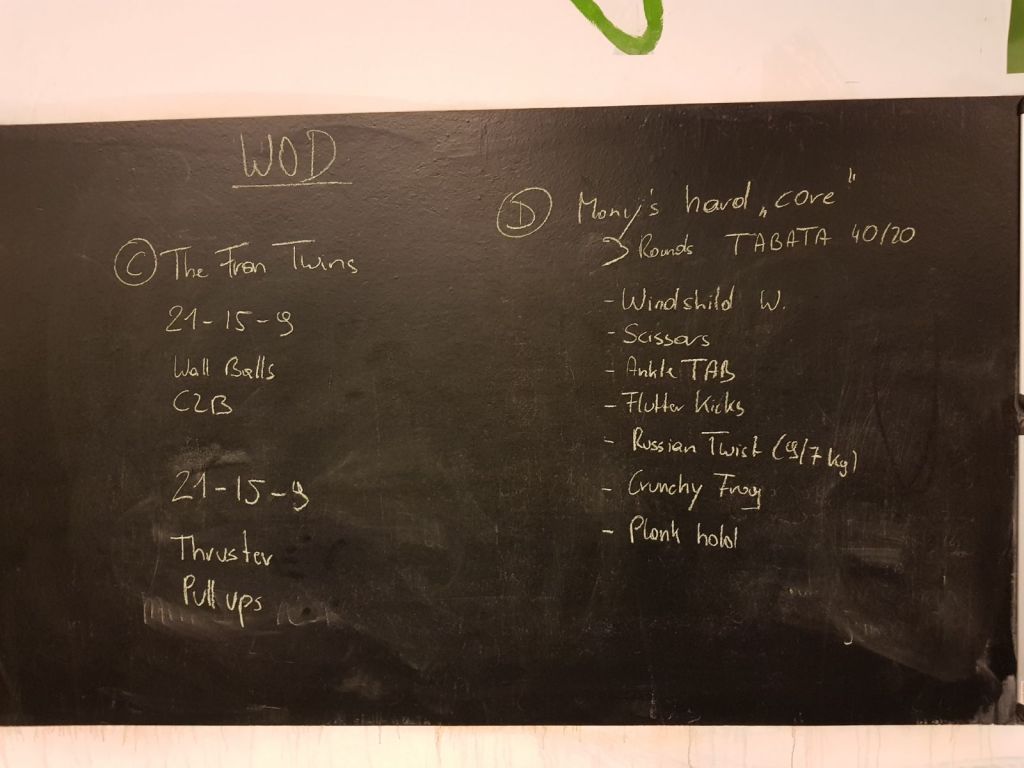 WOD
Ⓒ The Fran Twins
21-15-9
Wall Balls
C2B
21-15-9
Thruster
Pull ups
Ⓓ Mony's hard „core"
3 Rounds TABATA 40/20
- Windshild W.
- Scissors
- Ankle TAB
- Flutter Kicks
- Russian Twist (9/7 kg)
- Crunchy Frog
- Plank hold